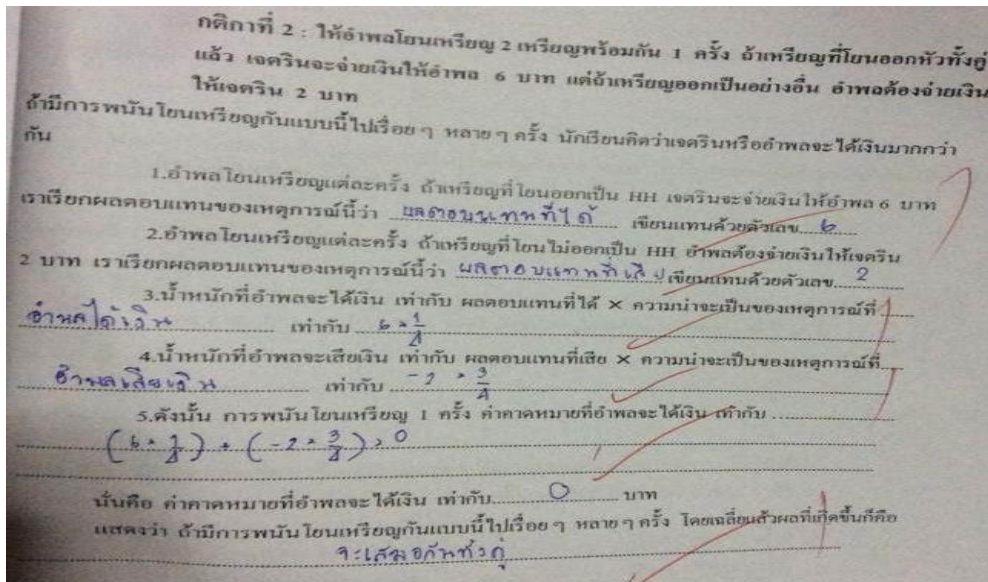 กติกาที่ 2 : ให้อำพลโยนเหรียญ 2 เหรียญพร้อมกัน 1 ครั้ง ถ้าเหรียญที่โยนออกหัวทั้งคู่
แล้ว เจตรินจะจ่ายเงินให้อำพล 6 บาท แต่ถ้าเหรียญออกเป็นอย่างอื่น อำพลต้องจ่ายเงิน
ให้เจตริน 2 บาท
ถ้ามีการพนันโยนเหรียญกันแบบนี้ไปเรื่อย ๆ หลาย ๆ ครั้ง นักเรียนคิดว่าเจตรินหรืออำพลจะได้เงินมากกว่า
กัน
1.อำพลโยนเหรียญแต่ละครั้ง ถ้าเหรียญที่โยนออกเป็น HH เจตรินจะจ่ายเงินให้อำพล 6 บาท
เราเรียกผลตอบแทนของเหตุการณ์นี้ว่า ผลตอบแทนที่ได้ เขียนแทนด้วยตัวเลข 6
2.อำพลโยนเหรียญแต่ละครั้ง ถ้าเหรียญที่โยนไม่ออกเป็น HH อำพลต้องจ่ายเงินให้เจตริน
2 บาท เราเรียกผลตอบแทนของเหตุการณ์นี้ว่า ผลตอบแทนที่เสีย เขียนแทนด้วยตัวเลข 2
3.น้ำหนักที่อำพลจะได้เงิน เท่ากับ ผลตอบแทนที่ได้ × ความน่าจะเป็นของเหตุการณ์ที่
อำพลได้เงิน เท่ากับ 6 × 1/4
4.น้ำหนักที่อำพลจะเสียเงิน เท่ากับ ผลตอบแทนที่เสีย × ความน่าจะเป็นของเหตุการณ์ที่
อำพลเสียเงิน เท่ากับ -2 × 3/4
5.ดังนั้น การพนันโยนเหรียญ 1 ครั้ง ค่าคาดหมายที่อำพลจะได้เงิน เท่ากับ
(6 × 1/4) + (-2 × 3/4) = 0
นั่นคือ ค่าคาดหมายที่อำพลจะได้เงิน เท่ากับ 0 บาท
แสดงว่า ถ้ามีการพนันโยนเหรียญกันแบบนี้ไปเรื่อย ๆ หลาย ๆ ครั้ง โดยเฉลี่ยแล้วผลที่เกิดขึ้นก็คือ
จะเสมอกันทั้งคู่